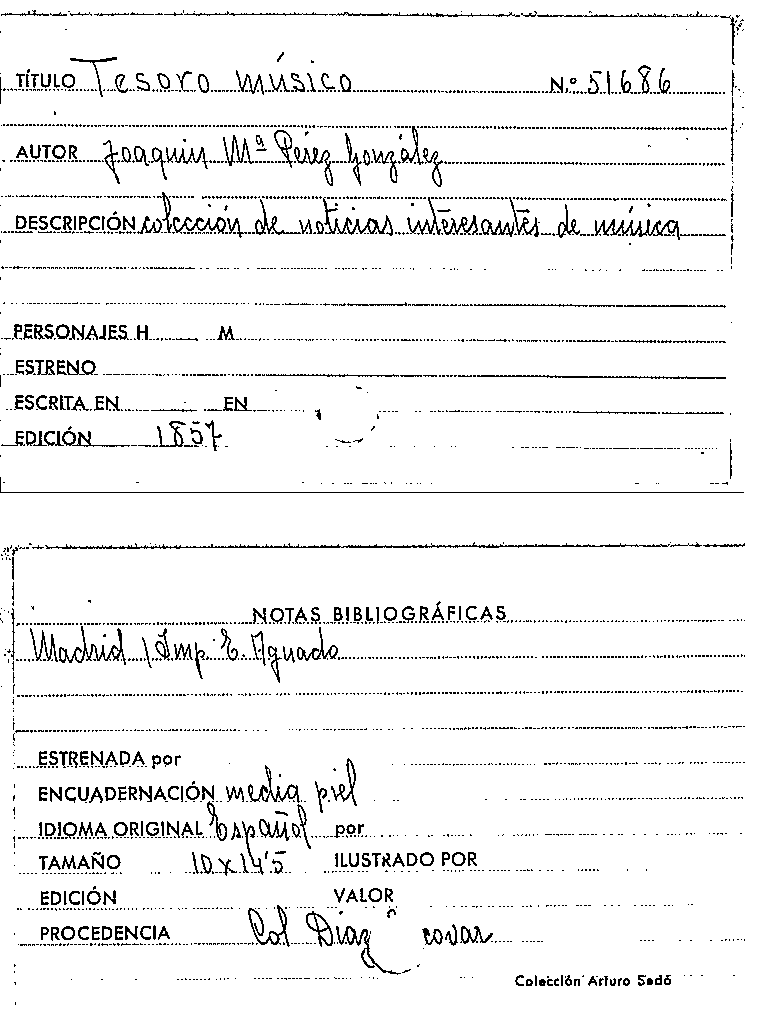 TÍTULO Tesoro músico N.º 51686
AUTOR Joaquin Mª Pérez González
DESCRIPCIÓN colección de noticias interesantes de música
PERSONAJES H M
ESTRENO
ESCRITA EN EN
EDICIÓN 1857
NOTAS BIBLIOGRÁFICAS
Madrid / Imp E. Aguado
ESTRENADA por
ENCUADERNACIÓN media piel
IDIOMA ORIGINAL Español por
TAMAÑO 10x14'5 ILUSTRADO POR
EDICIÓN VALOR
PROCEDENCIA Col Díaz covar
Colección Arturo Sedó